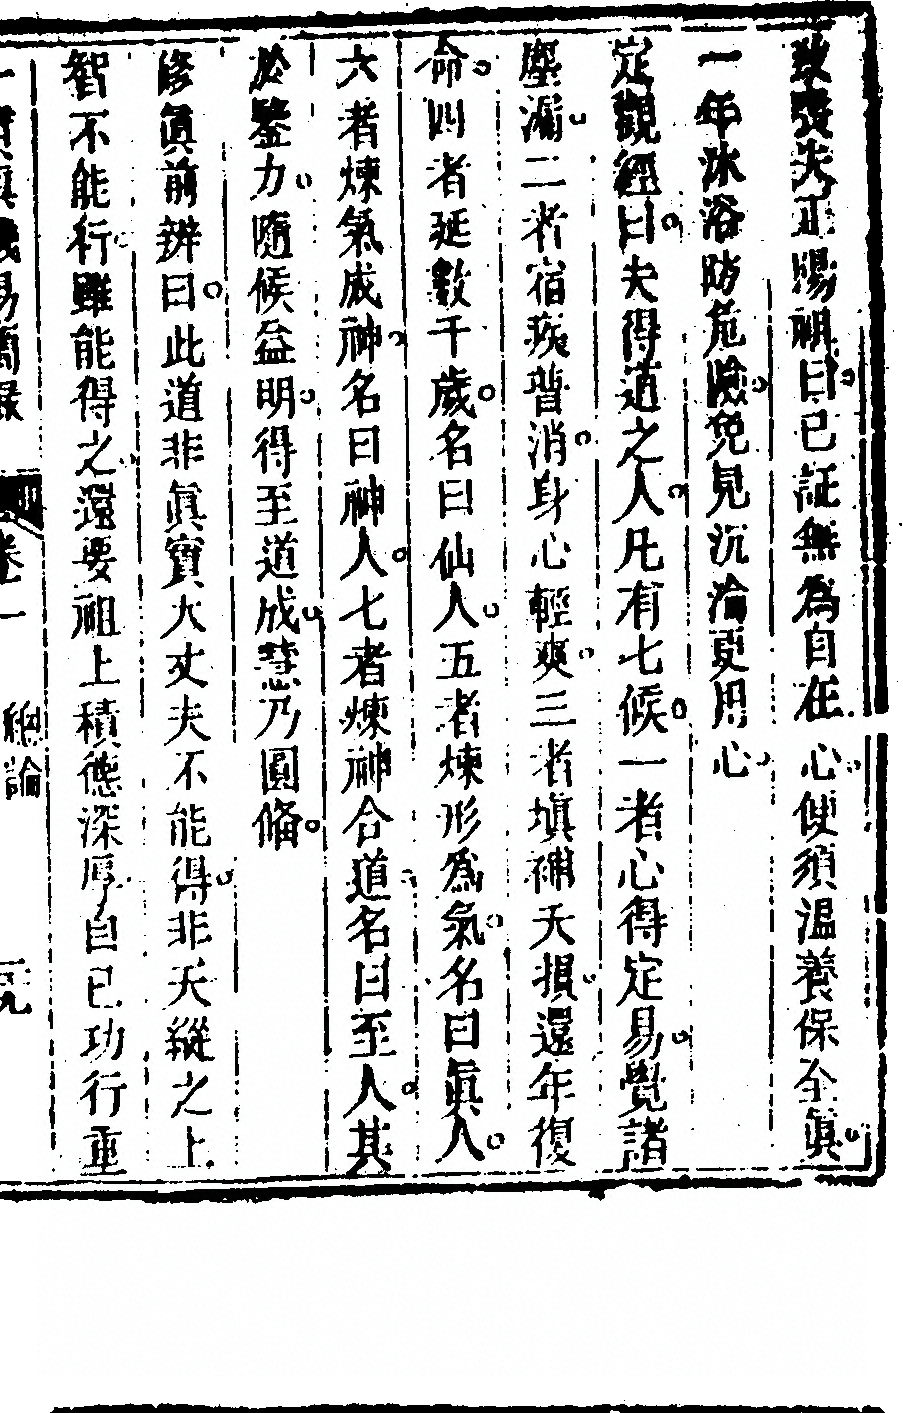 致喪失正陽祖曰已証無為自在心便須溫養保全真
一年沐浴防危險免見沉淪更用心
定觀經曰夫得道之人凡有七候一者心得定易覺諸
塵漏二者宿疾普消身心輕爽三者塡補夭損還年復
命四者延數千歲名曰仙人五者煉形爲氣名曰眞人
六者煉氣成神名曰神人七者煉神合道名曰至人其
於鑒力隨候益明得至道成慧乃圓備
修眞前辨曰此道非眞實大丈夫不能得非天縱之上
智不能行雖能得之還要祖上積德深厚自已功行重
卷一 總論